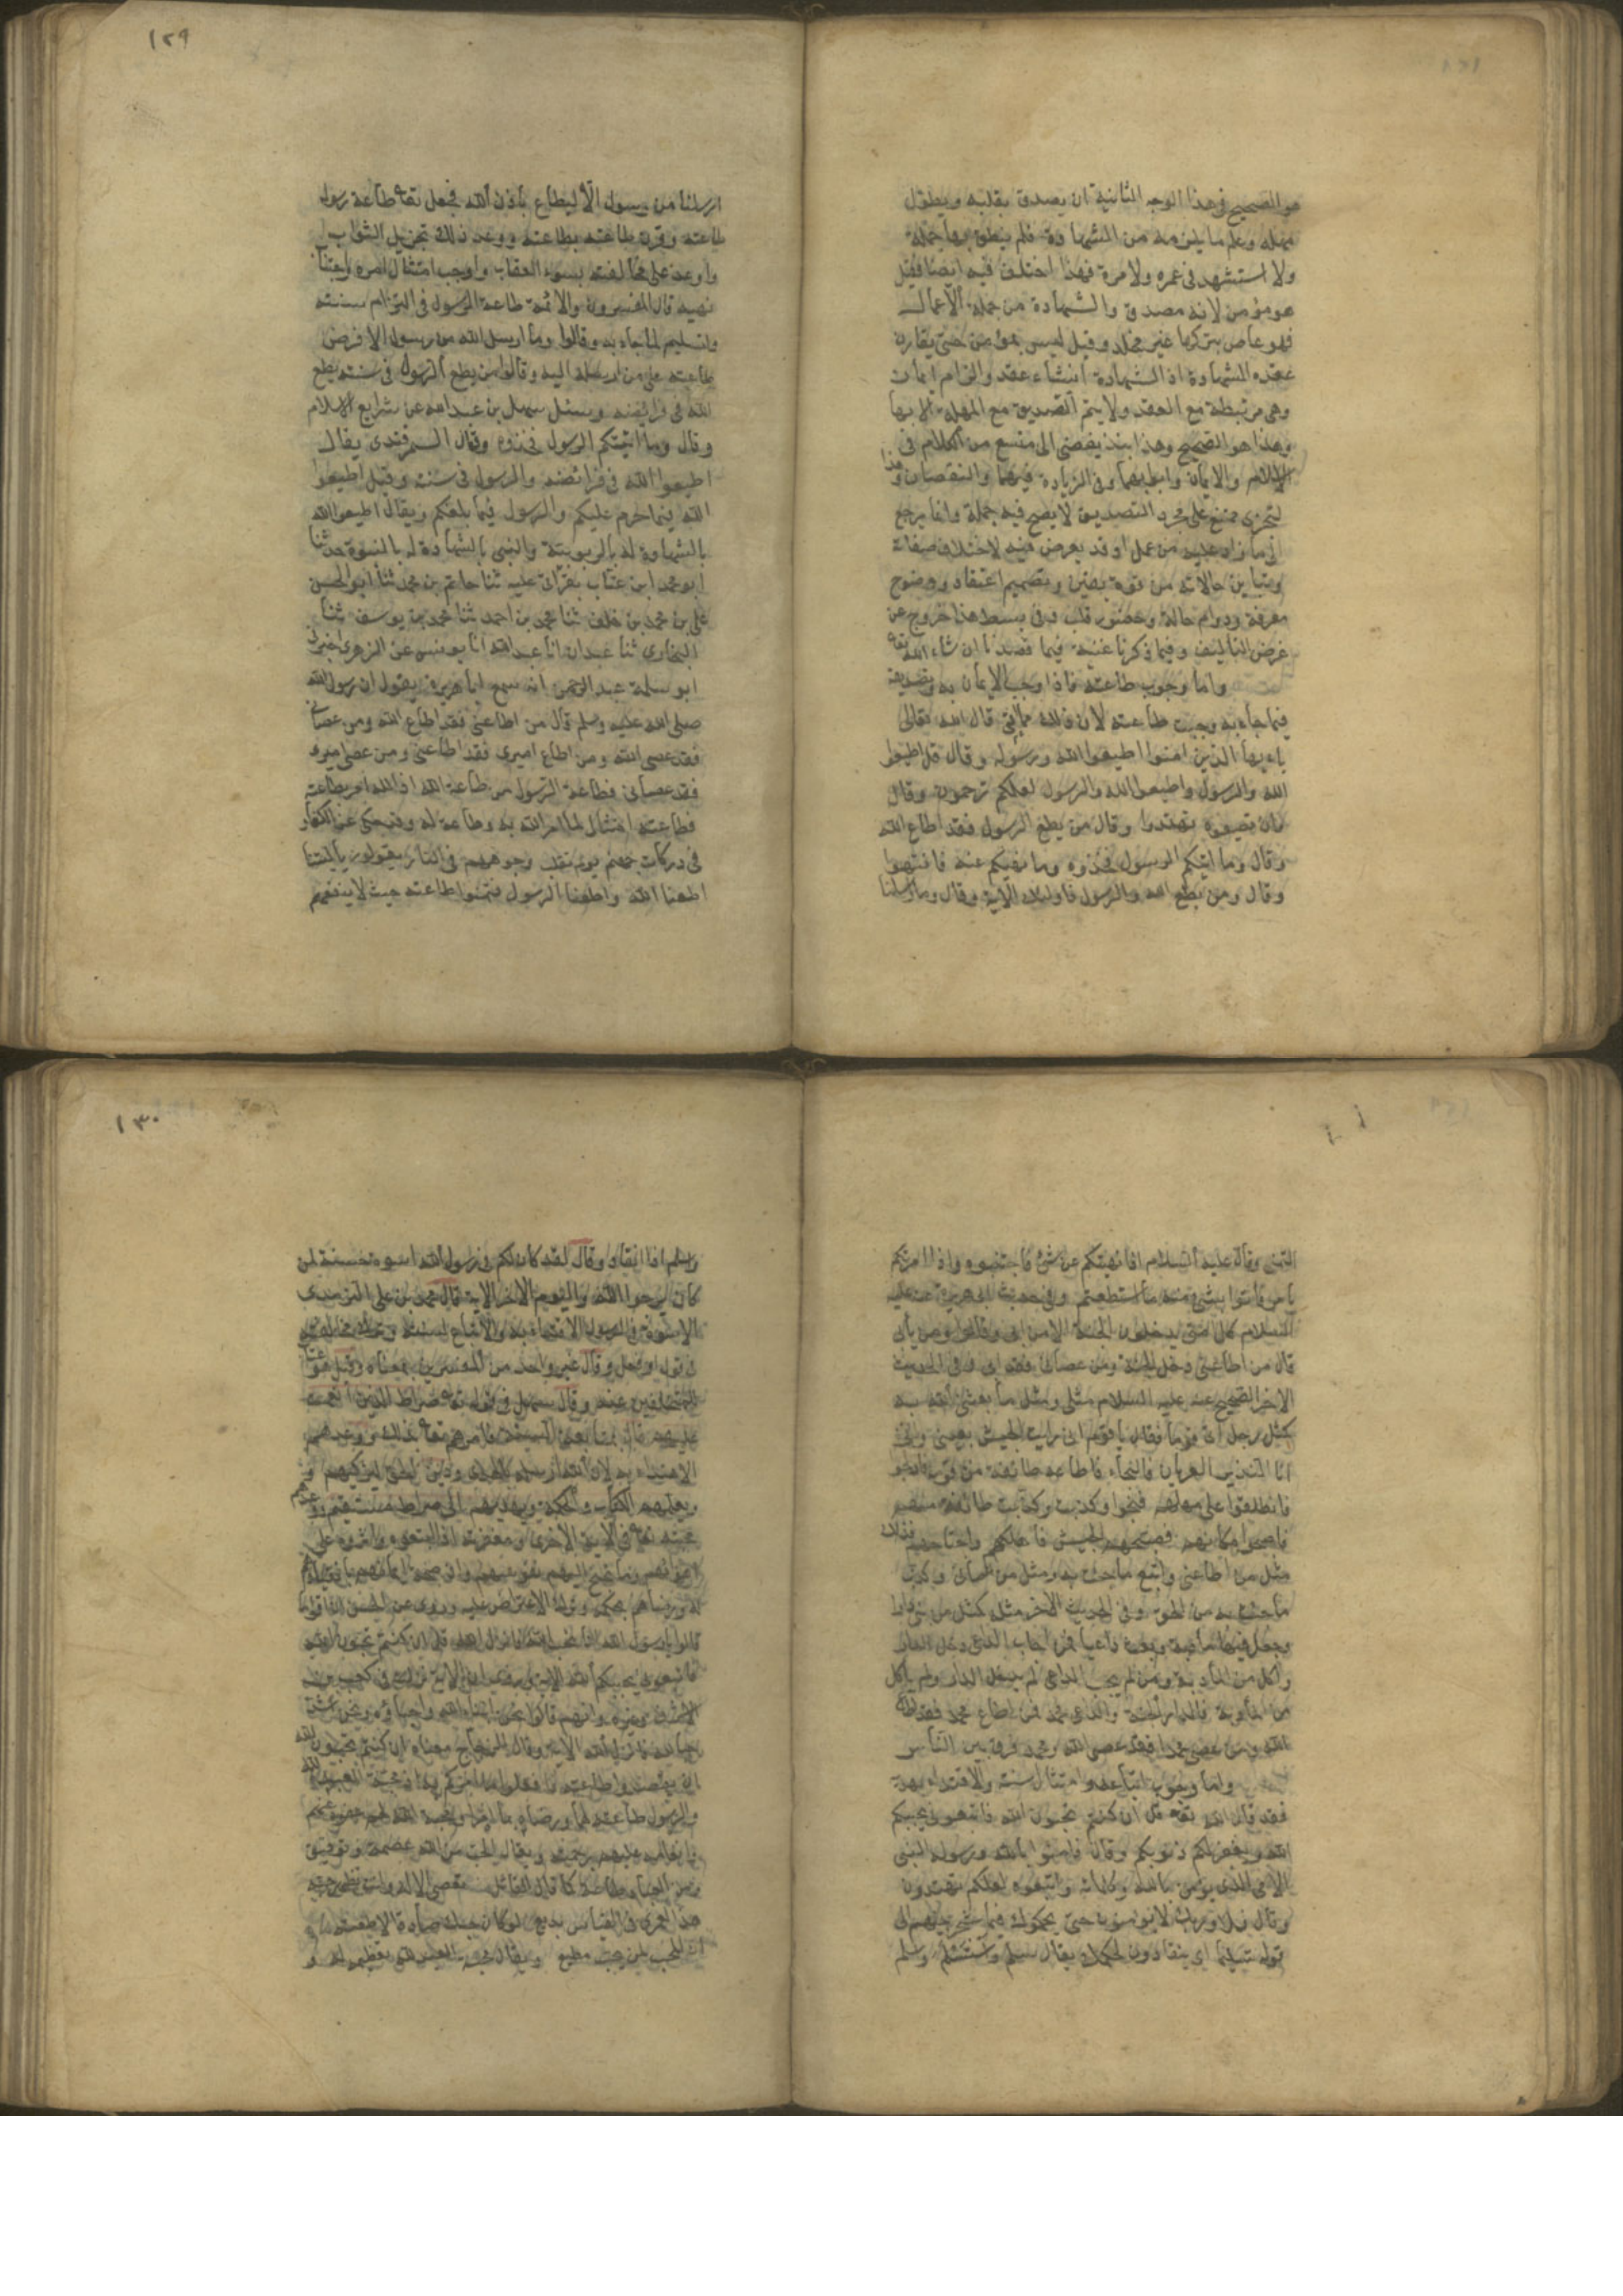 هو الصحيح في هذا الوجه الثانية ان يصدق بقلبه ويطول
مهله وعلم ما يلزمه من الشهادة فلم ينطق بها جملة
ولا استشهد في عمره ولا مرة فهذا اختلف فيه ايضا فقيل
هو مؤمن لانه مصدق والشهادة من جملة الاعمال
فهو عاص بتركها غير مخلد وقيل ليس بمؤمن حتى يقارن
عقده الشهادة اذ الشهادة انشاء عقد والتزام ايمان
وهي مرتبطة مع العقد ولا يتم التصديق مع المهلة الا بها
وهذا هو الصحيح وهذا نبذ يفضي الى متسع من الكلام في
الاسلام والايمان وابوابهما وفي الزيادة فيهما والنقصان وهذا
التجزي ممتنع على مجرد التصديق لا يصح فيه جملة وانما يرجع
الى ما زاد عليه من عمل او قد يعرض فيه لاختلاف صفاته
وتباين حالاته من قوة يقين وتصميم اعتقاد ووضوح
معرفة ودوام حالة وحضور قلب وفي بسط هذا خروج عن
غرض التاليف وفيما ذكرنا غنية فيما قصدنا ان شاء الله تعه
واما وجوب طاعته فاذا وجب الايمان به وتصديقه
فيما جاء به وجبت طاعته لان ذلك مما اتى به قال الله تعالى
يا ايها الذين امنوا اطيعوا الله ورسوله وقال قل اطيعوا
الله والرسول واطيعوا الله والرسول لعلكم ترحمون وقال
وان تطيعوه تهتدوا وقال من يطع الرسول فقد اطاع الله
وقال وما اتيكم الرسول فخذوه وما نهيكم عنه فانتهوا
وقال ومن يطع الله والرسول فاوليك الآية وقال وما ارسلنا
١٢٩
ارسلنا من رسول الا ليطاع باذن الله فجعل تعه طاعة رسوله
طاعته وقرن طاعته بطاعته ووعد ذلك بجزيل الثواب
واوعد على مخالفته بسوء العقاب واوجب امتثال امره واجتناب
نهيه قال المفسرون والائمة طاعة الرسول في التزام سنته
والتسليم لما جاء به وقالوا وما ارسل الله من رسول الا فرض
طاعته على من ارسله اليه وقالوا من يطع الرسول في سنته يطع
الله في فرائضه وسئل سهل بن عبد الله عن شرايع الاسلام
وقال وما اتيكم الرسول فخذوه وقال السمرقندي يقال
اطيعوا الله في فرائضه والرسول في سنته وقيل اطيعوا
الله فيما حرم عليكم والرسول فيما بلغكم ويقال اطيعوا الله
بالشهادة له بالربوبية والنبي بالشهادة له بالنبوة حدثنا
ابو محمد ابن عتاب بقراتي عليه ثنا حاتم بن محمد ثنا ابو الحسن
علي بن محمد بن خلف ثنا محمد بن احمد ثنا محمد بن يوسف ثنا
البخاري ثنا عبدان انا عبد الله انا يونس عن الزهري اخبرني
ابو سلمة عبد الرحمن انه سمع ابا هريرة يقول ان رسول الله
صلى الله عليه وسلم قال من اطاعني فقد اطاع الله ومن عصاني
فقد عصى الله ومن اطاع اميري فقد اطاعني ومن عصى اميري
فقد عصاني فطاعة الرسول من طاعة الله اذ الله امر بطاعته
فطاعته امتثال لما امر الله به وطاعة له وقد حكى عن الكفار
في دركات جهنم يوم تقلب وجوههم في النار يقولون يا ليتنا
اطعنا الله واطعنا الرسول فتمنوا طاعته حيث لا ينفعهم
التمني وقال عليه السلام اذا نهيتكم عن شئ فاجتنبوه واذا امرتكم
بامر فأتوا بشئ منه ما استطعتم وفي حديث ابي هريرة عنه عليه
السلام كل امتي يدخلون الجنة الا من ابى وقالوا ومن يأبى
قال من اطاعني دخل الجنة ومن عصاني فقد ابى وفي الحديث
الاخر الصحيح عنه عليه السلام مثلي ومثل ما بعثني الله به
كمثل رجل اتى قوما فقال يا قوم اني رايت الجيش بعيني واني
انا النذير العريان فالنجاء فاطاعه طائفة من قومه فادلجوا
فانطلقوا على مهلهم فنجوا وكذبت طائفة منهم
فاصبحوا مكانهم فصبحهم الجيش فاهلكهم واجتاحهم فذلك
مثل من اطاعني واتبع ما جئت به ومثل من عصاني وكذب
ما جئت به من الحق وفي الحديث الاخر مثله كمثل من بنى دارا
وجعل فيها مأدبة وبعث داعيا فمن اجاب الداعي دخل الدار
واكل من المأدبة ومن لم يجب الداعي لم يدخل الدار ولم يأكل
من المأدبة فالدار الجنة والداعي محمد فمن اطاع محمد فقد اطاع
الله ومن عصى محمدا فقد عصى الله ومحمد فرق بين الناس
واما وجوب اتباعه وامتثال سنته والاقتداء بهديه
فقد قال الله تعه قل ان كنتم تحبون الله فاتبعوني يحببكم
الله ويغفر لكم ذنوبكم وقال فامنوا بالله ورسوله النبي
الامي الذي يؤمن بالله وكلماته واتبعوه لعلكم تهتدون
وقال فلا وربك لا يؤمنون حتى يحكموك فيما شجر بينهم الى
قوله تسليما اي ينقادون لحكمك يقال سلم واستسلم وسلم
١٣٠
واسلم اذا انقاد وقال لقد كان لكم في رسول الله اسوة حسنة لمن
كان يرجوا الله واليوم الاخر الاية قال محمد بن علي الترمذي
الاسوة في الرسول الاقتداء به والاتباع لسنته وترك مخالفته
في قول او فعل وقال غير واحد من المفسرين بمعناه وقيل هو عتاب
للمتخلفين عنه وقال سهل في قوله تعه صراط الذين انعمت
عليهم قال بمتابعة السنة فامرهم تعه بذلك ووعدهم
الاهتداء به لان الله ارسله بالهدى ودين الحق ليزكيهم
ويعلمهم الكتاب والحكمة ويهديهم الى صراط مستقيم ووعدهم
محبته تعه في الآية الاخرى ومغفرته اذا اتبعوه واثروه على
اهوائهم وما تجنح اليه نفوسهم وان صحة ايمانهم بانقيادهم
له ورضاهم بحكمه وترك الاعتراض عليه وروى عن الحسن ان اقواما
قالوا يا رسول الله انا نحب الله فانزل الله قل ان كنتم تحبون الله
فاتبعوني يحببكم الله الاية وروى ان الاية نزلت في كعب بن
الاشرف وغيره وانهم قالوا نحن ابناء الله واحباؤه ونحن اشد
حبا لله فانزل الله الاية وقال الزجاج معناه ان كنتم تحبون الله
ان تقصدوا طاعته فافعلوا ما امركم به اذ محبة العبد لله
والرسول طاعته لهما ورضاه بما امرا ومحبة الله لهم عفوه عنهم
وانعامه عليهم برحمته ويقال الحب من الله عصمة وتوفيق
ومن العباد طاعة كما قال القائل تعصي الاله وانت تظهر حبه
هذا لعمري في القياس بديع لو كان حبك صادقا لاطعته
ان المحب لمن يحب مطيع ويقال محبة العبد لله تعظيمه له و